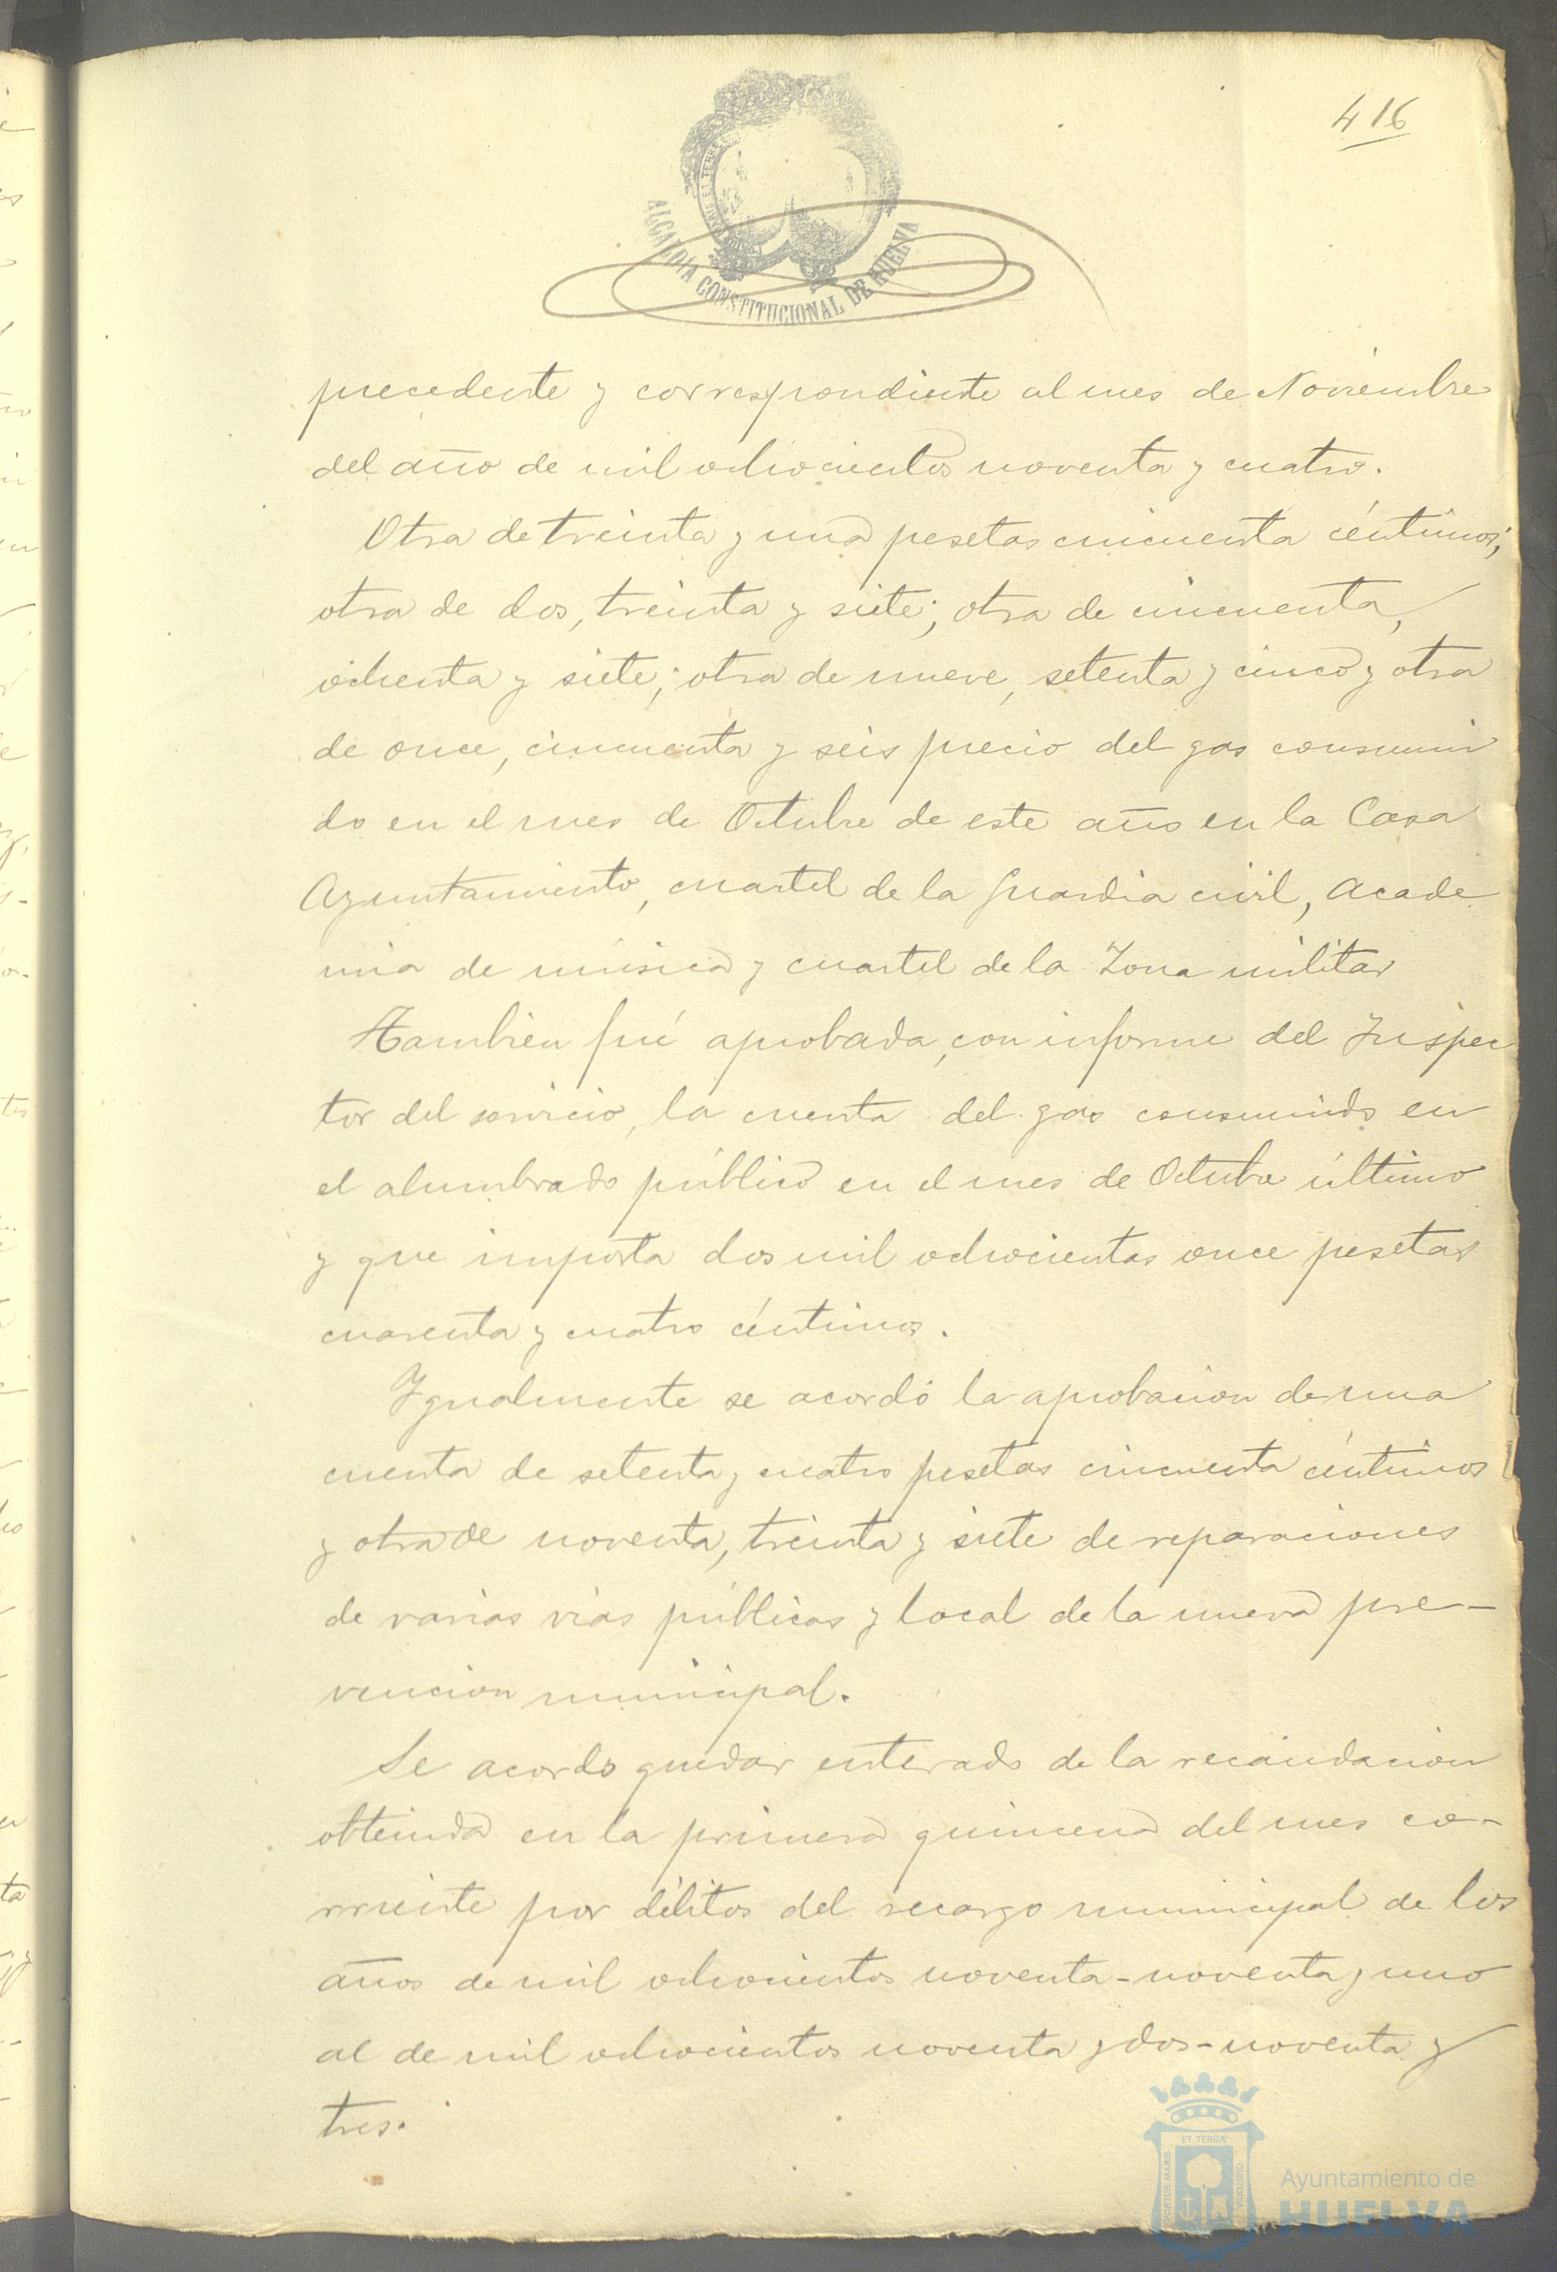 416
ALCALDÍA CONSTITUCIONAL DE HUELVA
precedente y correspondiente al mes de Noviembre
del año de mil ochocientos noventa y cuatro.
Otra de treinta y una pesetas cincuenta céntimos;
otra de dos, treinta y siete; otra de cincuenta,
ochenta y siete; otra de nueve, setenta y cinco y otra
de once, cincuenta y seis precio del gas consumi
do en el mes de Octubre de este año en la Casa
Ayuntamiento, cuartel de la Guardia civil, Acade
mia de música y cuartel de la Zona militar
Tambien fué aprobada, con informe del Inspec
tor del servicio, la cuenta del gas consumido en
el alumbrado público en el mes de Octubre último
y que importa dos mil ochocientas once pesetas
cuarenta y cuatro céntimos.
Igualmente se acordó la aprobacion de una
cuenta de setenta y cuatro pesetas cincuenta céntimos
y otra de noventa, treinta y siete de reparaciones
de varias vías públicas y local de la nueva pre-
vencion municipal.
Se acordo quedar enterado de la recaudacion
obtenida en la primera quincena del mes co-
rriente por débitos del recargo municipal de los
años de mil ochocientos noventa-noventa y uno
al de mil ochocientos noventa y dos-noventa y
tres.
ET TERRÆ
PORTUS MARIS
CUSTODIA
Ayuntamiento de
HUELVA